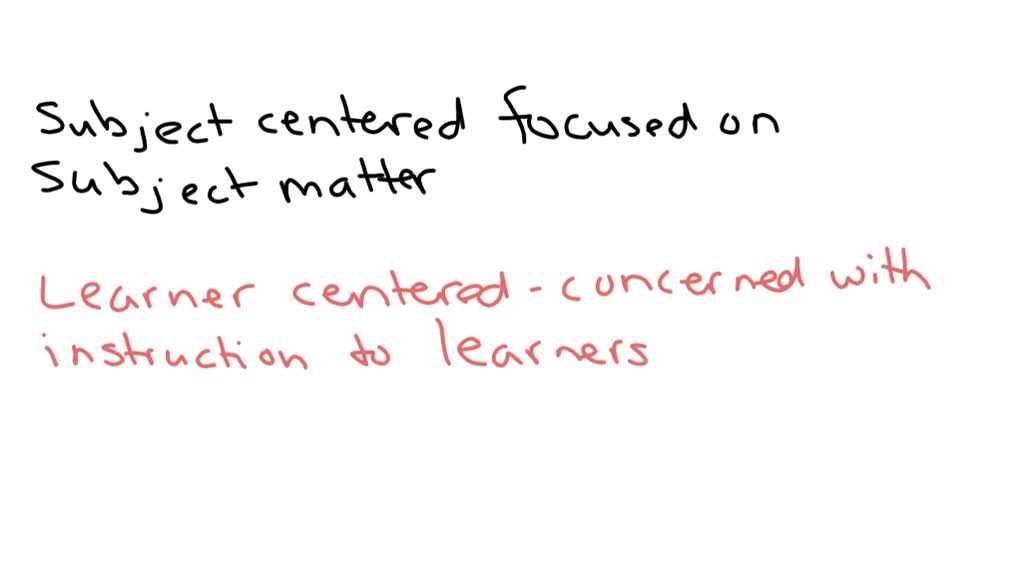 Subject centered focused on
Subject matter
Learner centered - concerned with
instruction to learners